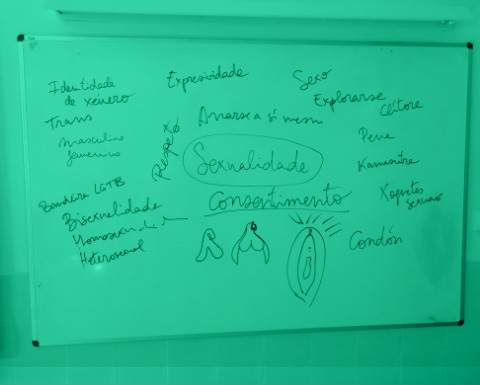 Identidade
de xénero
Trans
masculino
femenino
Bandeira LGTB
Bisexualidade
Heterosexual
Expresividade
Respexo
Sexo
Explorarse
Clítore
Amarse a si mesm
Pene
Sexualidade
Kamasutra
Consentimento
Xoguetes
sexuais
Condón